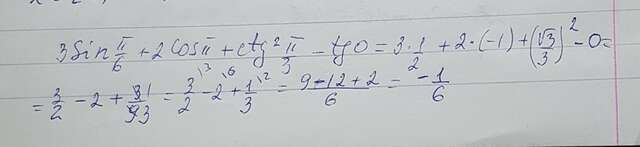 3 sin π/6 + 2 cos π + ctg² π/3 - tg 0 = 3 · 1/2 + 2 · (-1) + (√3/3)² - 0 =
= 3/2 - 2 + 31/93 = 3\3/2 - 2\6 + 1\2/3 = 9 - 12 + 2/6 = - 1/6